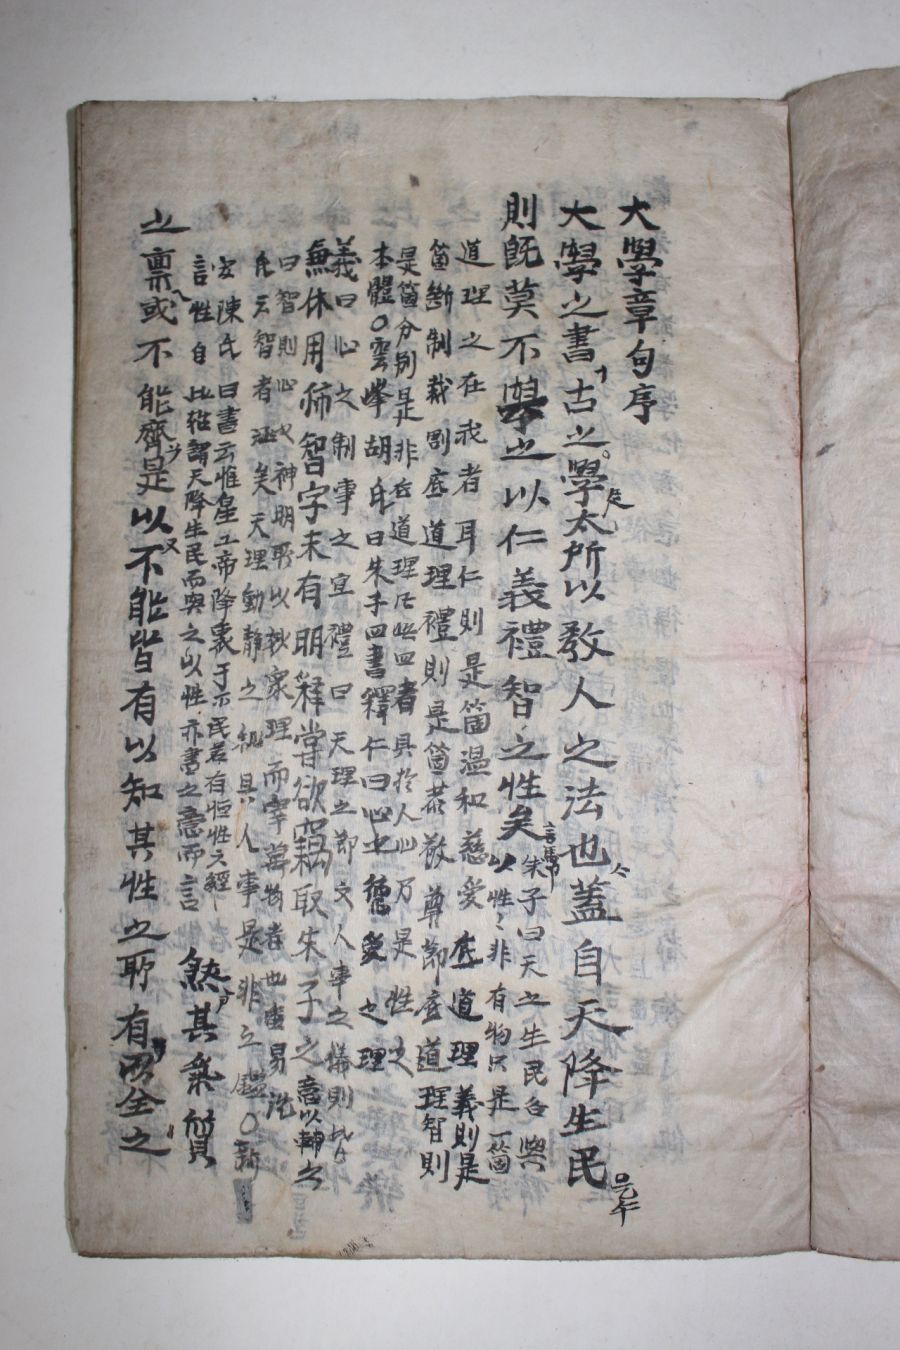 大學章句序
大學之書古之學太所以敎人之法也蓋自天降生民
則旣莫不與之以仁義禮智之性矣
朱子曰天之生民各與
以性性非有物只是一箇
道理之在我者耳仁則是箇溫和慈愛底道理義則是
箇斷制裁割底道理禮則是箇恭敬尊節底道理智則
是箇分別是非底道理四者具於人心乃是性之
本體○雲峯胡氏曰朱子四書釋仁曰心之德愛之理
義曰心之制事之宜禮曰天理之節文人事之儀則皆
無休用而智字未有明釋嘗欲竊取朱子之意以補之
曰智則心之神明所以妙衆理而宰萬物者也番易沈
氏云智者涵天理動靜之機具人事是非之鑑○新
安陳氏曰書云惟皇上帝降衷于下民若有恒性之經
言性自此始謂天降生民而與之以性亦書之意而言
然其氣質
之稟或不能齊是以不能皆有以知其性之所有而全之